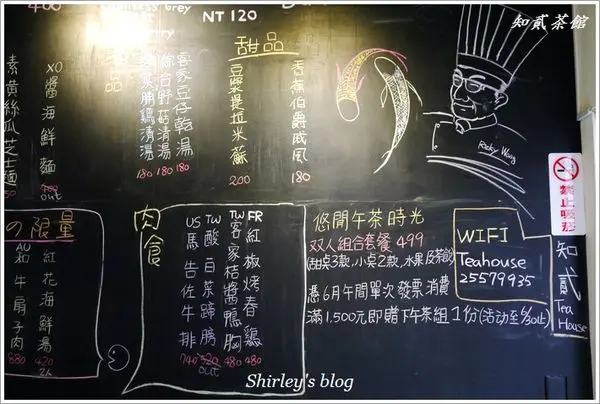 400
NT 120
知貳茶館
甜品
豆漿提拉米蘇
200
香蕉伯爵戚風
180
客家豆仔乾湯
180
綜合野菇清湯
180
180
XO醬海鮮麵
out
素黃絲瓜芝士麵
Ricky Wang
禁止吸菸
の限量
AU和牛扇子肉
880
紅花海鮮湯
420
2人
肉食
US馬告佐牛排
740
TW酸白菜蹄膀
out
TW客家桔醬鴨胸
480
FR紅椒烤春雞
480
悠閒午茶時光
双人組合套餐 499
(甜桌3款, 小桌2款, 水果及茶飲)
憑6月午間單次發票消費
滿1,500元即贈下午茶組1份(活动至6/30止)
WIFI
Teahouse
25579935
知貳
Tea House
Shirley's blog